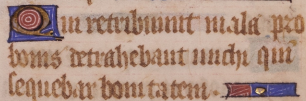 Qui retribuunt mala pro
bonis detrahebant michi qm̄
sequebar bonitatem.